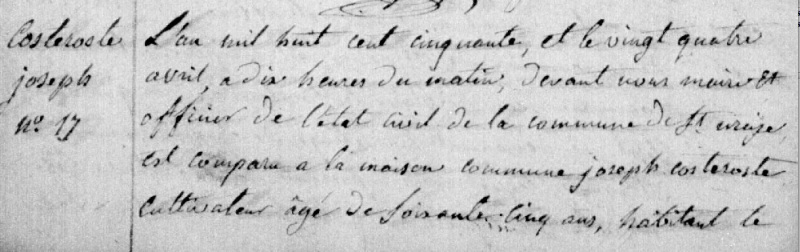 Costeroste
joseph
no. 17
L'an mil huit cent cinquante, et le vingt quatre
avril, a dix heures du matin, devant nous maire et
officier de l'état civil de la commune de St
est comparu a la maison commune joseph costeroste
cultivateur âgé de soixante-cinq ans, habitant le